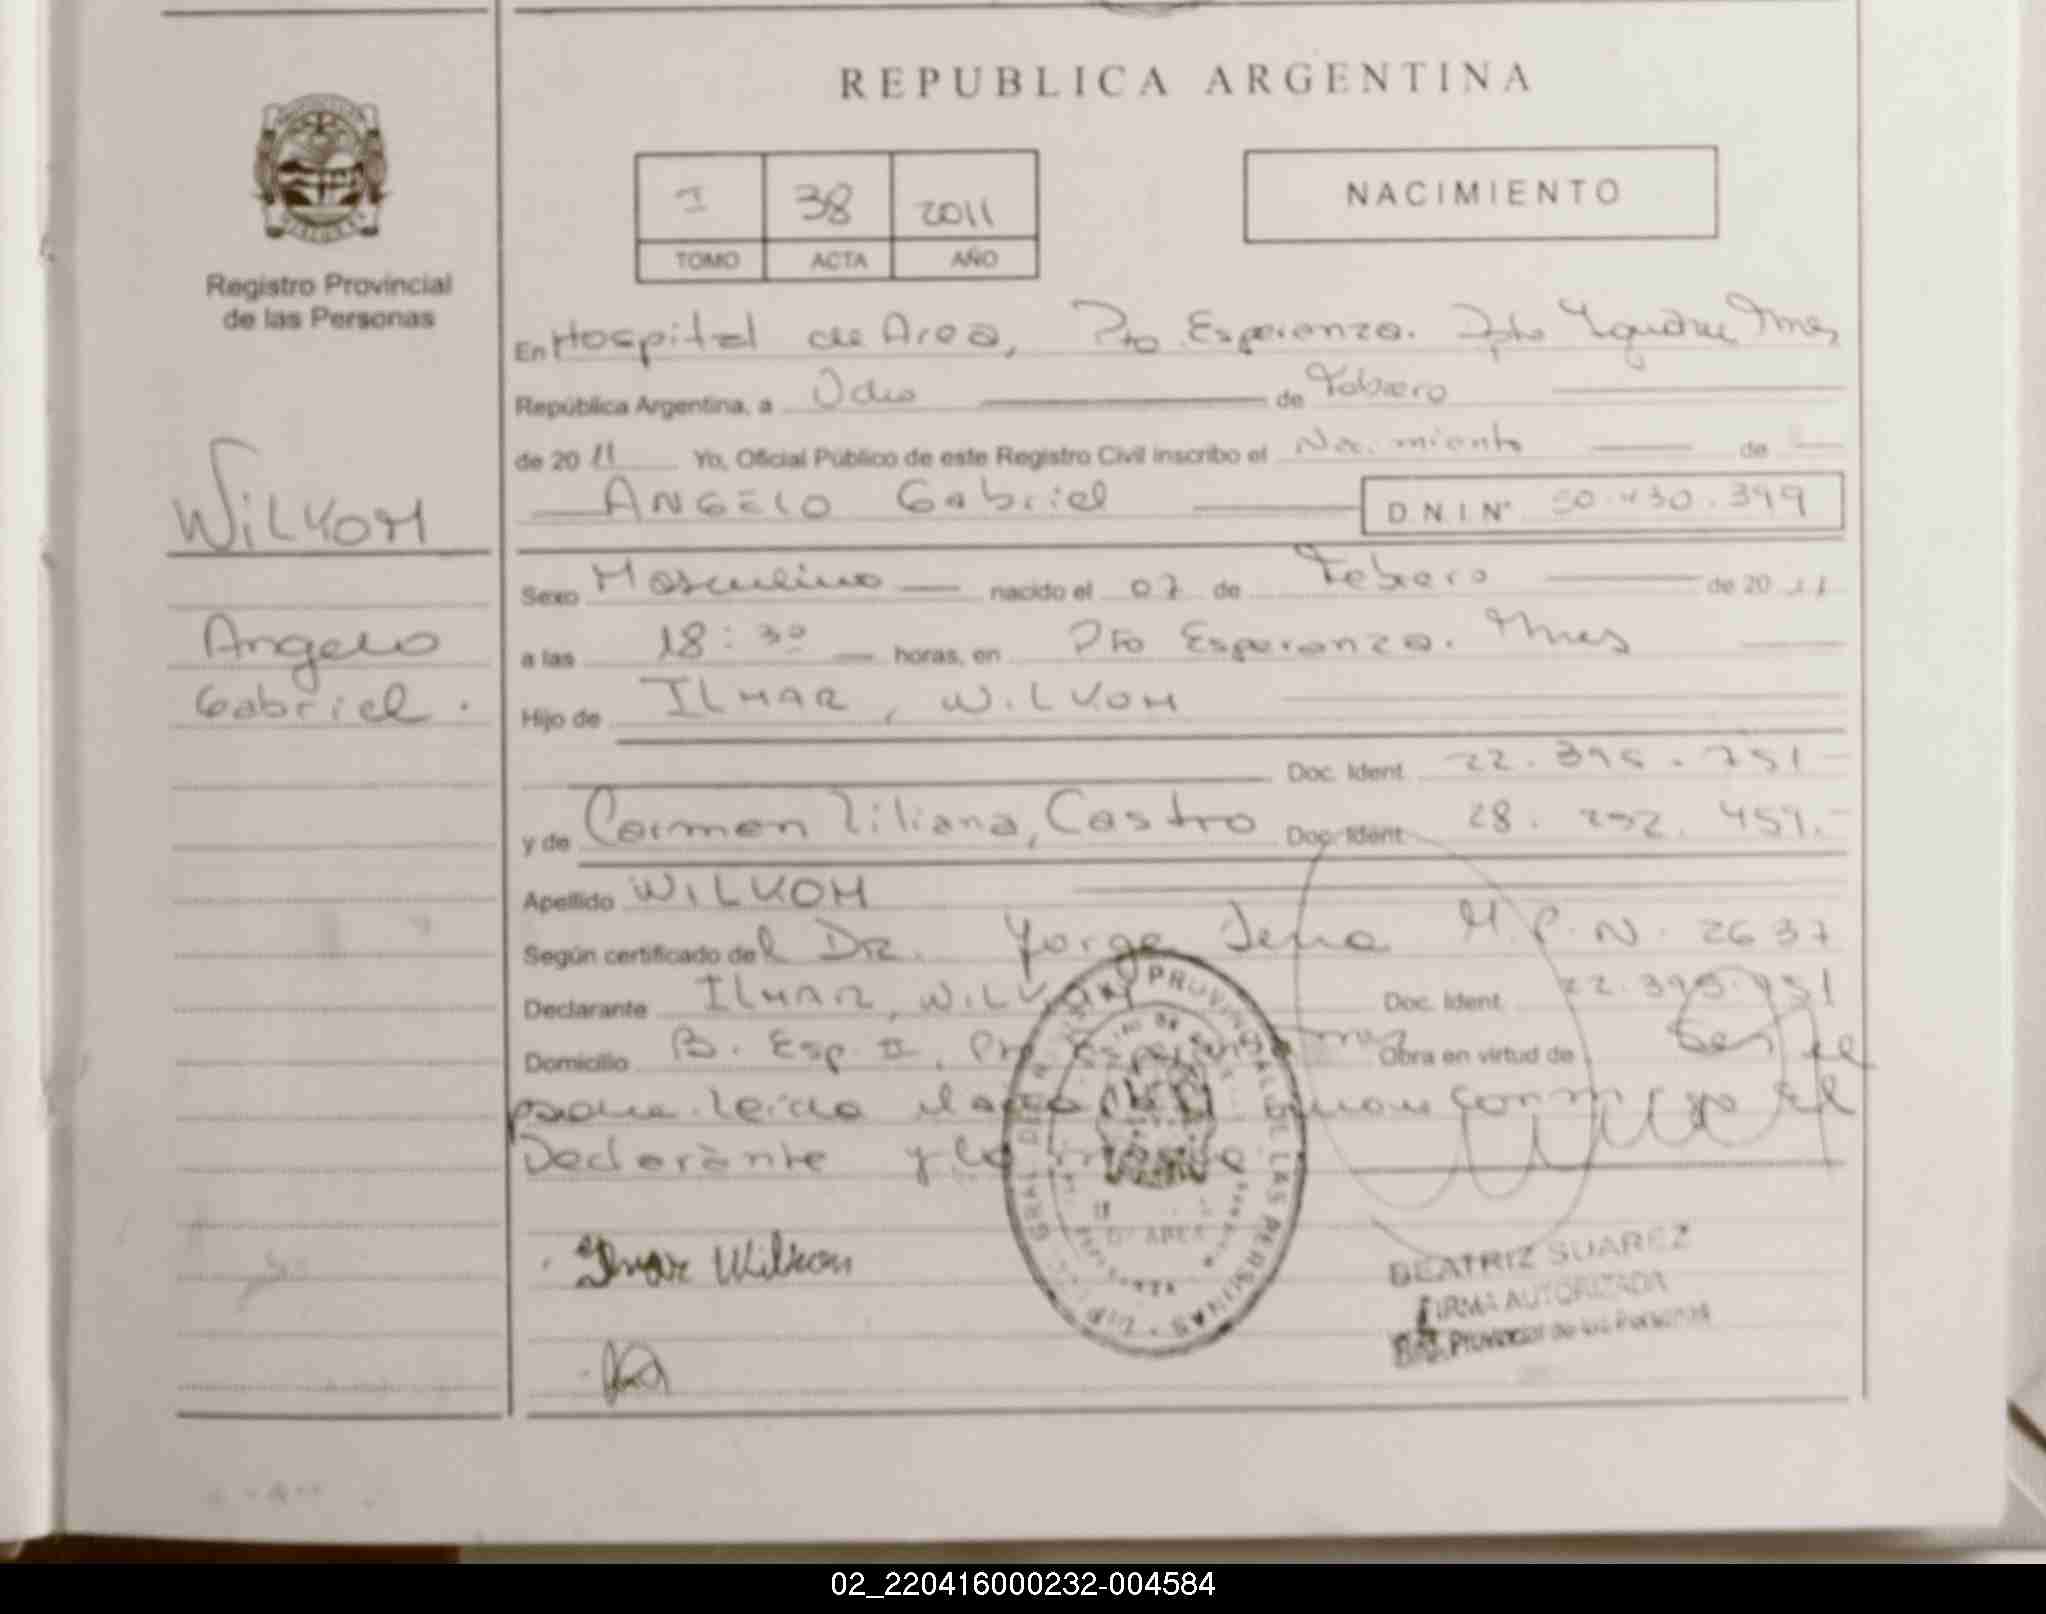 REPUBLICA ARGENTINA
NACIMIENTO
I 38 2011
TOMO ACTA AÑO
Registro Provincial
de las Personas
WiLKOM
Angelo
Gabriel.
En Hospital de Area, Pto Esperanza. Dpto Iguazu Mnes
República Argentina, a Ocho de Febrero
de 20 11 Yo, Oficial Público de este Registro Civil inscribo el Nacimiento de
ANGELO Gabriel D.N.I Nº 50.430.399
Sexo Masculino nacido el 07 de Febrero de 20 11
a las 18:30 horas, en Pto Esperanza. Mnes
Hijo de ILMAR, WILKOM
Doc. Ident. 22.395.751
y de Carmen Liliana, Castro Doc. Ident. 28.252.459.
Apellido WILKOM
Según certificado del DR. Jorge M.P.N. 2637
Declarante ILMAR, WILK Doc. Ident.
Domicilio B. Esp. II, Pto Obra en virtud de
padre. leida el acta conmigo el
Declarante y la
Ilmar Wilkom
PROVINCIAL DE LAS PERSONAS
BEATRIZ SUAREZ
FIRMA AUTORIZADA
Provincial de las Personas
02_220416000232-004584